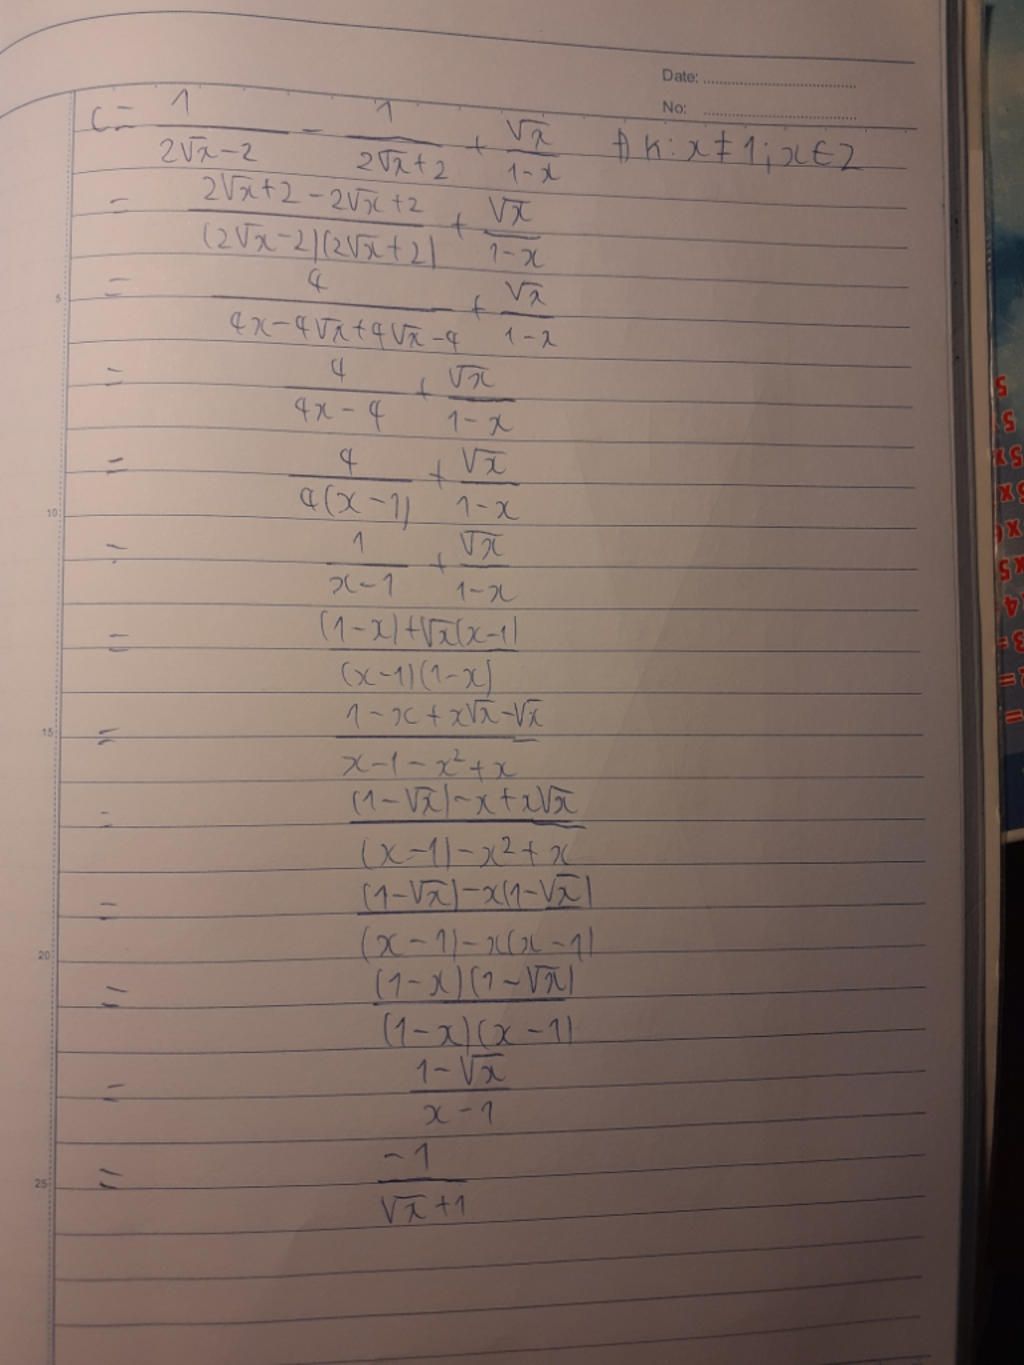 Date: ..........
No: ..........
C = 1/(2√x-2) - 1/(2√x+2) + √x/(1-x) ĐK: x ≠ 1; x ∈ Z
= (2√x+2-2√x+2)/((2√x-2)(2√x+2)) + √x/(1-x)
= 4/(4x-4√x+4√x-4) + √x/(1-x)
= 4/(4x-4) + √x/(1-x)
= 4/(4(x-1)) + √x/(1-x)
= 1/(x-1) + √x/(1-x)
= ((1-x)+√x(x-1))/((x-1)(1-x))
= (1-x+x√x-√x)/(x-1-x²+x)
= ((1-√x)-x+x√x)/((x-1)-x²+x)
= ((1-√x)-x(1-√x))/((x-1)-x(x-1))
= ((1-x)(1-√x))/((1-x)(x-1))
= (1-√x)/(x-1)
= -1/(√x+1)
5
10
15
20
25